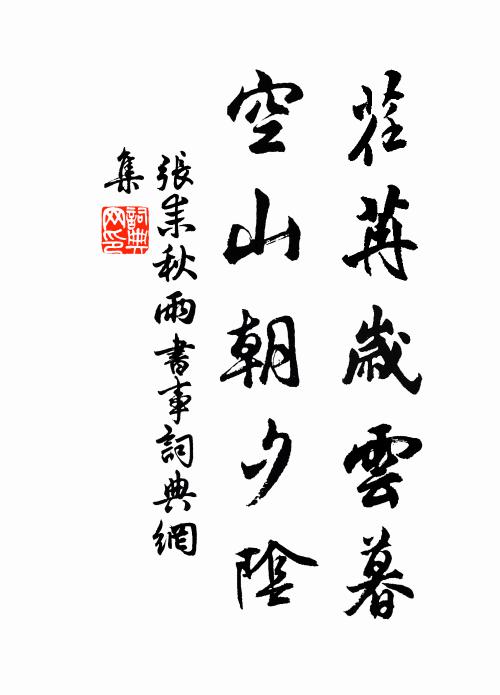 荏苒歲雲暮
空山朝夕陰
張耒秋雨書事詞典網
集
詞典
网印